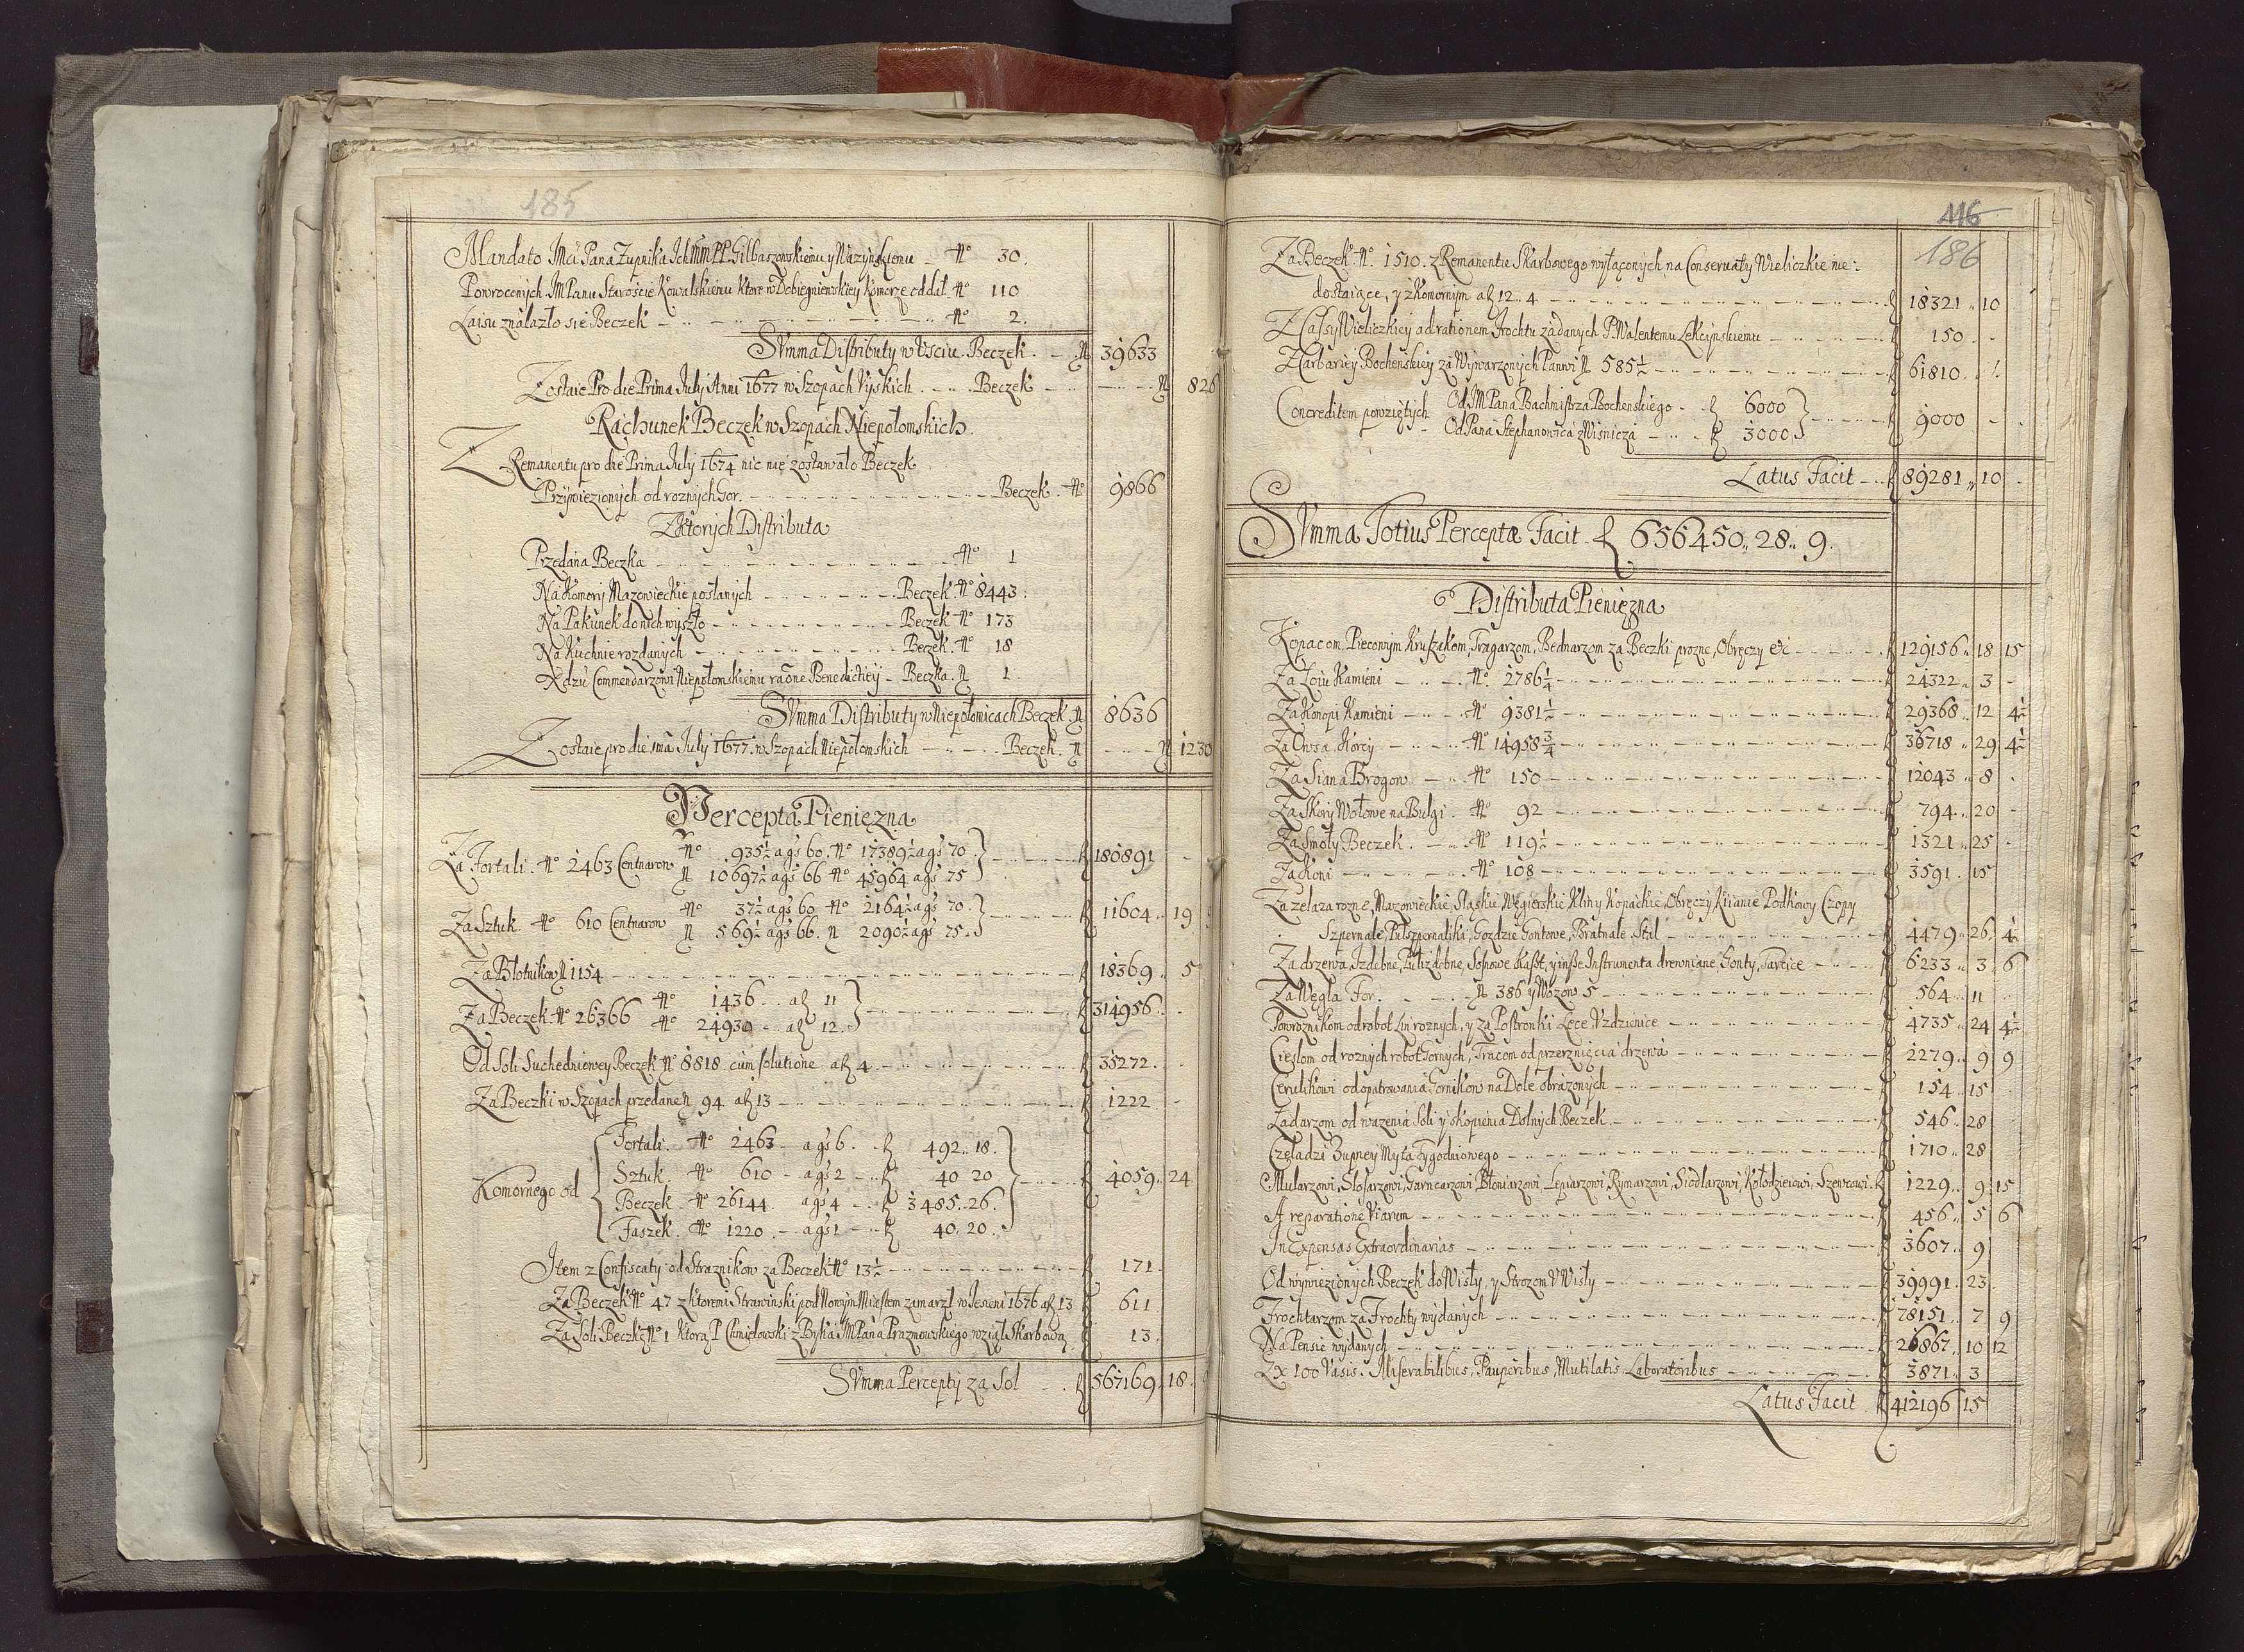 185
Mandato JMci Pana Zupnika Ich MM PP. Gilbaszowskiemu y Nazynskiemu No 30.
Powroconych JMPanu Staroscie Kowalskiemu ktore w Dobiegniewskiey Komorze oddał No 110
Laisu znalazło się Beczek No 2.
Summa Distributy w Uściu. Beczek. N 39633
Zostaie Pro die Prima July Anni 1677 w Szopach Vyskich. Beczek N 826
Rachunek Beczek w Szopach Niepołomskich.
Z Remanentu pro die Prima July 1674 nic nie zostawało Beczek
Przywiezionych od roznych Gor. Beczek. No 9866
Z ktorych Distributa
Przedana Beczka No 1
Na Komory Mazowieckie posłanych Beczek. No 8443.
Na Pakunek do nich wyszło Beczek No 173
Na Kuchnie rozdanych Beczek. No 18
Xdzu Commendarzowi Niepołomskiemu raone Benedictiey Beczka. N 1.
Summa Distributy w Niepołomicach Beczek. N 8636
Zostaie pro die 1ma July 1677. w Szopach Niepołomskich Beczek. N N 1230
Percepta Pieniezna
Za Fortali. No 2463 Centnarow No 935½ a gs 60. No 17389½ a gs 70
N 10697½ a gs 66 No 45964 a gs 75 180891
Za Sztuk No 610 Centnarow No 37½ a gs 60 No 2164½ a gs 70.
N 569½ a gs 66. N 2090½ a gs 75. 11604 19
Za Błotnikow N 1154 18369 5
Za Beczek No 26366 No 1436 a f 11
No 24930 a f 12. 314956.
Od Soli Suchedniowey Beczek No 8818 cum solutione a f 4 35272.
Za Beczki w Szopach przedane N 94 a f 13 1222
Komornego od Fortali. No 2463 a gs 6. f 492. 18.
Sztuk No 610 a gs 2 f 40 20
Beczek No 26144 a gs 4 f 3485. 26. 4059. 24
Faszek. No 1220 a gs 1 f 40. 20.
Item z Confiscaty od Straznikow za Beczek No 13½ 171
Za Beczek No 47 z ktoremi Strawinski pod Nowym Miastem zamarzł w Jesieni 1676 a f 13 611
Za Soli Beczkę No 1 ktorą P Chmielowski z Byka JMPana Prazmowskiego wziął Skarbową 13
Summa Percepty za Sol f 567169. 18.
116
186
Za Beczek No. 1510. z Remanentu Skarbowego wyłączonych na Conserwaty Wieliczkie nie:
dostaiące, y z komornym a f 12. 4 18321 10
Z Cassy Wieliczkiey ad rationem Frochtu zadanych P. Walentemu Lekcynskiemu 150
Z Karbariey Bochenskiey za Wywarzonych Panwi N 585½ 61810
Concreditem powziętych Od JMPana Bachmistrza Bochenskiego f 6000
Od Pana Stephanowica z Wisnicza f 3000 9000
Latus Facit f 89281 10
Summa Totius Perceptæ Facit f 656450. 28. 9.
Distributa Pieniezna
Kopaczom, Piecowym, Kruszakom, Tragarzom, Bednarzom za Beczki prozne, Obręczy etc 129156 18 15
Za Łoiu Kamieni No. 2786¼ 24322 3
Za Konopi Kamieni No 9381½ 29368 12 4½
Za Owsa Korcy No 14958¾ 36718 29 4½
Za Siana Brogow No 150 12043 8
Za Skory Wołowe na Bulgi No 92 794 20
Za Smoły Beczek. No 119½ 1321 25
Za Koni No 108 3591 15
Za zelaza rozne, Mazowieckie, Sląskie Węgierskie Kliny Kopackie, Obręczy Kiianie Podkowy Czopy
Szpernale, Pulszpernaliki, Gozdzie Gontowe, Bratnale Stal 4479 26 4½
Za drzewa Izdebne, Pulizdebne, Sosnowe Kaszt, y insze Instrumenta drewniane, Gonty, Tarcice 6233 3 6
Za Węgla For. N 386 y Wozow 5 564 11
Powroznikom od robot Lin roznych, y za Postronki Lece, Vzdzienice 4735 24 4½
Cieslom od roznych robot Gornych, Tracom od przerznięcia drzewa 2279 9 9
Cerulikowi od opatrowania Gornikow na Dole obrazonych 154 15
Ladarzom od wazenia Soli y skopienia Dolnych Beczek 546 28
Czeladzi Zupney Myta Tygodniowego 1710 28
Mularzowi, Slosarzowi, Garncarzowi Błoniarzowi Lepiarzowi, Rymarzowi, Siodlarzowi, Kołodzieiowi, Szewcowi 1229 9 15
A reparatione Viarum 456 5 6
In Expensas Extraordinarias 3607 9
Od wywiezionych Beczek do Wisły, y Strozom V Wisły 39991 23
Frochtarzom za Frochty wydanych 78151 7 9
Na Pensie wydanych 26867 10 12
Ex 100 Vasis. Miserabilibus, Pauperibus, Mutilatis Laboratoribus 3871 3
Latus Facit 412196 15